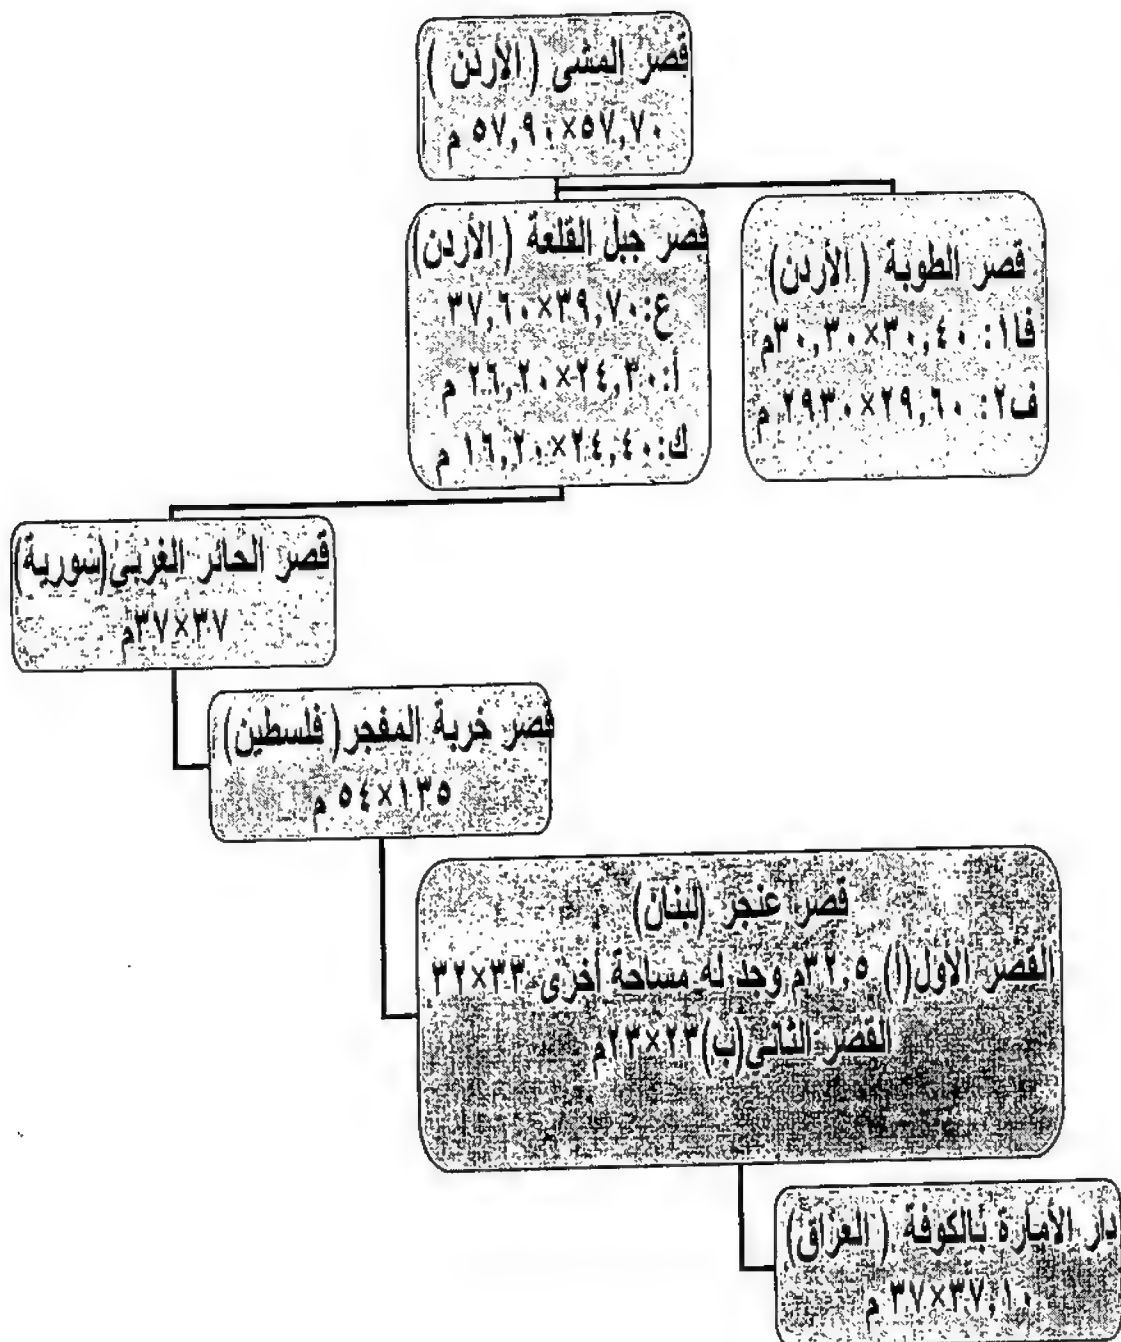 قصر المشى ( الأردن )
٥٧,٧٠×٥٧,٩٠ م
قصر جبل القلعة ( الأردن)
ع:٣٩,٧٠×٣٧,٦٠
أ:٢٤,٣٠×٢٦,٢٠ م
ك:٢٤,٤٠×١٦,٢٠ م
قصر الطوبة ( الأردن)
فا١: ٣٠,٤٠×٣٠,٣٠م
ف٢: ٢٩,٦٠×٢٩٣٠ م
قصر الحائر الغربى(سورية)
٣٧×٣٧م
قصر خربة المفجر( فلسطين)
١٣٥×٥٤ م
قصر عنجر (لبنان)
القصر الأول(ا) ٣٢,٥م وجد له مساحة أخرى ٣٣×٣٢
القصر الثانى(ب)٢٣×٢٣م
دار الأمارة بالكوفة ( العراق)
٣٧,١٠×٣٧ م